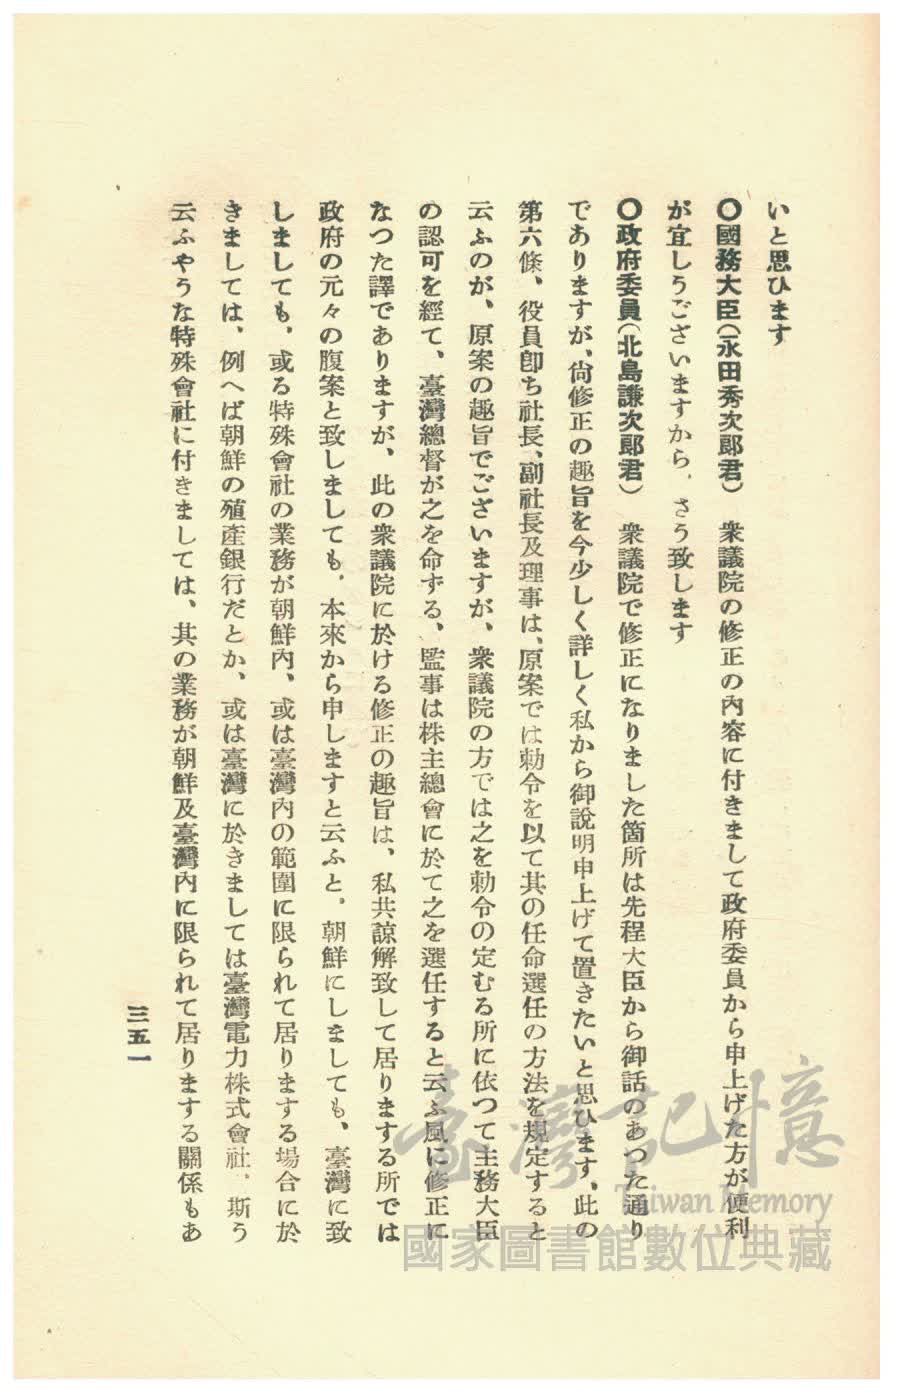 いと思ひます
〇國務大臣(永田秀次郎君)　衆議院の修正の內容に付きまして政府委員から申上げた方が便利
が宜しうございますから、さう致します
〇政府委員(北島謙次郎君)　衆議院で修正になりました箇所は先程大臣から御話のあつた通り
でありますが、尙修正の趣旨を今少しく詳しく私から御說明申上げて置きたいと思ひます、此の
第六條、役員卽ち社長、副社長及理事は、原案では勅令を以て其の任命選任の方法を規定すると
云ふのが、原案の趣旨でございますが、衆議院の方では之を勅令の定むる所に依つて主務大臣
の認可を經て、臺灣總督が之を命ずる、監事は株主總會に於て之を選任すると云ふ風に修正に
なつた譯でありますが、此の衆議院に於ける修正の趣旨は、私共諒解致して居りまする所では
政府の元々の腹案と致しましても、本來から申しますと云ふと、朝鮮にしましても、臺灣に致
しましても、或る特殊會社の業務が朝鮮內、或は臺灣內の範圍に限られて居りまする場合に於
きましては、例へば朝鮮の殖產銀行だとか、或は臺灣に於きましては臺灣電力株式會社、斯う
云ふやうな特殊會社に付きましては、其の業務が朝鮮及臺灣內に限られて居りまする關係もあ
三五一
臺灣記憶
Taiwan Memory
國家圖書館數位典藏